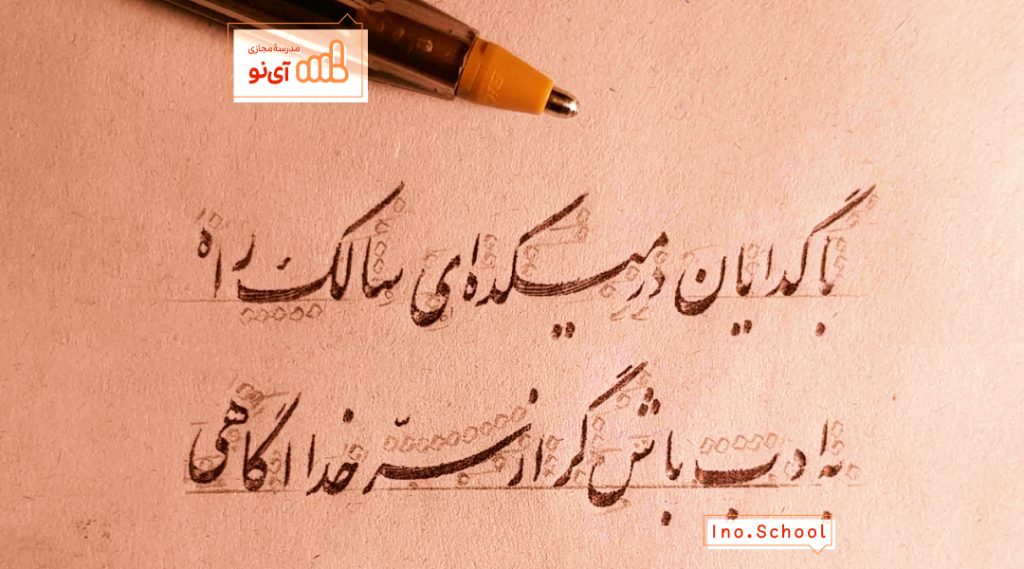 مدرسهٔ مجازی
آی‌نو
با گدایان در میکده ای سالک راه
به ادب باش گر از سرّ خدا اگاهی
Ino.School